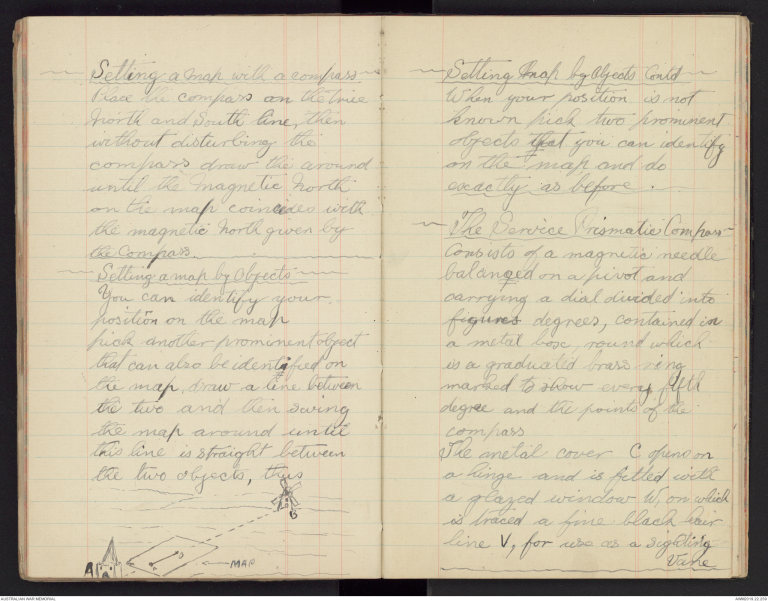 Setting a map with a compass
Place the compass on the true
North and South line, then
without disturbing the
compass draw the around
until the magnetic North
on the map coincides with
the magnetic North given by
the Compass.
Setting a map by Objects
You can identify your
position on the map
pick another prominent object
that can also be identified on
the map, draw a line between
the two and then swing
the map around until
this line is straight between
the two objects, thus
B
A
MAP
Setting Map by Objects Contd
When your position is not
known pick two prominent
objects that you can identify
on the map and do
exactly as before.
The Service Prismatic Compass
Consists of a magnetic needle
balanced on a pivot and
carrying a dial divided into
figures degrees, contained in
a metal box, round which
is a graduated brass ring
marked to show every fifth
degree and the points of the
compass
The metal cover C opens on
a hinge and is fitted with
a glazed window W, on which
is traced a fine black hair
line V, for use as a sighting
Vane
AUSTRALIAN WAR MEMORIAL